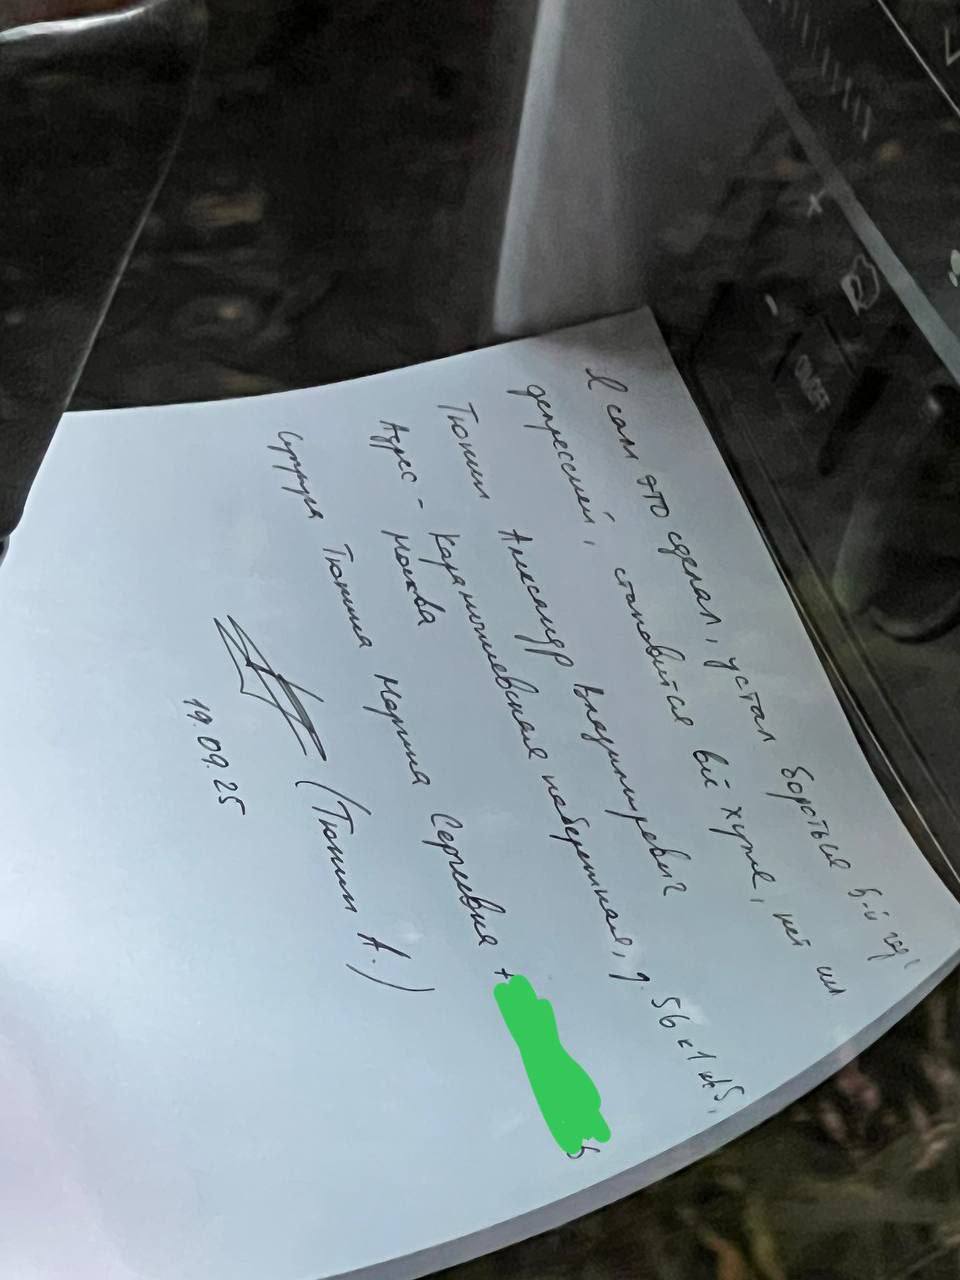 Я сам это сделал, устал бороться 5-й год с
депрессией, становится всё хуже, нет сил
Тюнин Александр Владимирович
Адрес - Карамышевская набережная, д. 56 к 1 кв 5,
Москва
Супруга Тюнина Марина Сергеевна +
(Тюнин А.)
19.09.25
ON/OFF